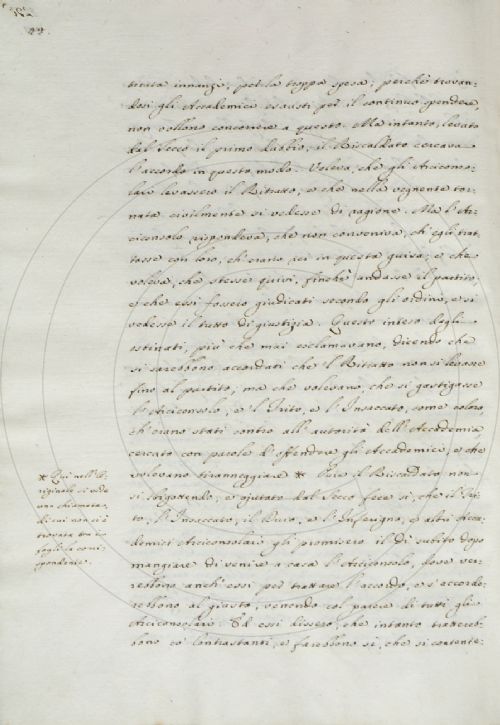 tirata innanzi, per la troppa spesa; perchè trovan-
dosi gli Accademici esausti per il continuo spendere,
non vollono concorrere a questo. Ma intanto, levato
dal Secco il primo dubbio, il Riscaldato cercava
l'accordo in questo modo. Voleva, che gli Arciconso-
lari levassero il Ritratto, e che nella vegnente tor-
nata civilmente si vedesse di ragione. Ma l'Ar-
ciconsolo rispondeva, che non conveniva, ch'egli trat-
tasse con loro, ch'erano rei in questa guisa; e che
voleva, che stesse quivi, finchè andasse il partito,
e che essi fossero giudicati secondo gli ordini, e si
vedesse il tutto di giustizia. Questo inteso dagli
ostinati, più che mai esclamavano, dicendo che
si sarebbono accordati che l Ritratto non si levasse
fino al partito; ma che volevano, che si gastigasse
l'Arciconsolo, e l' Trito, e l'Insaccato, come coloro,
ch'erano stati contro all'autorità dell'Accademia,
cercato con parole d'offendere gli Accademici, e che
volevano tiranneggiare * Pure il Riscaldato non
si sbigottendo, e ajutato dal Secco fece sì, che il Tri-
to, l'Insaccato, il Puro, e l'Inferigno, e altri Acca-
demici Arciconsolari gli promisero il dì subito dopo
mangiare di venire a casa l'Arciconsolo, dove ver-
rebbono anch'essi per trattare l'accordo, e s'accorde-
rebbono al giusto, venendo col parere di tutti gli
Arciconsolari. Ed essi dissero, che intanto tratterreb-
bono co' Contrastanti, e farebbono sì, che si contente-
* Qui nell'O-
riginale si vede
una chiamata,
di cui non si è
trovata tra i
fogli la corri-
spondenza.